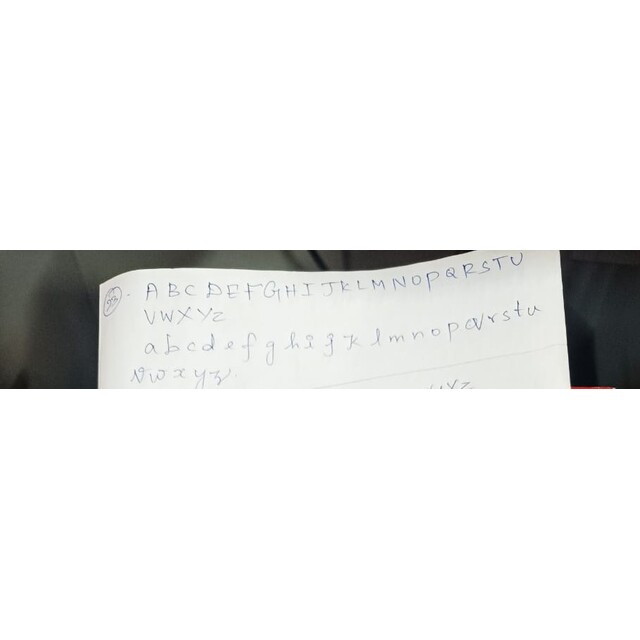 A B C D E F G H I J K L M N O P Q R S T U
V W X Y Z
a b c d e f g h i j k l m n o p q r s t u
v w x y z